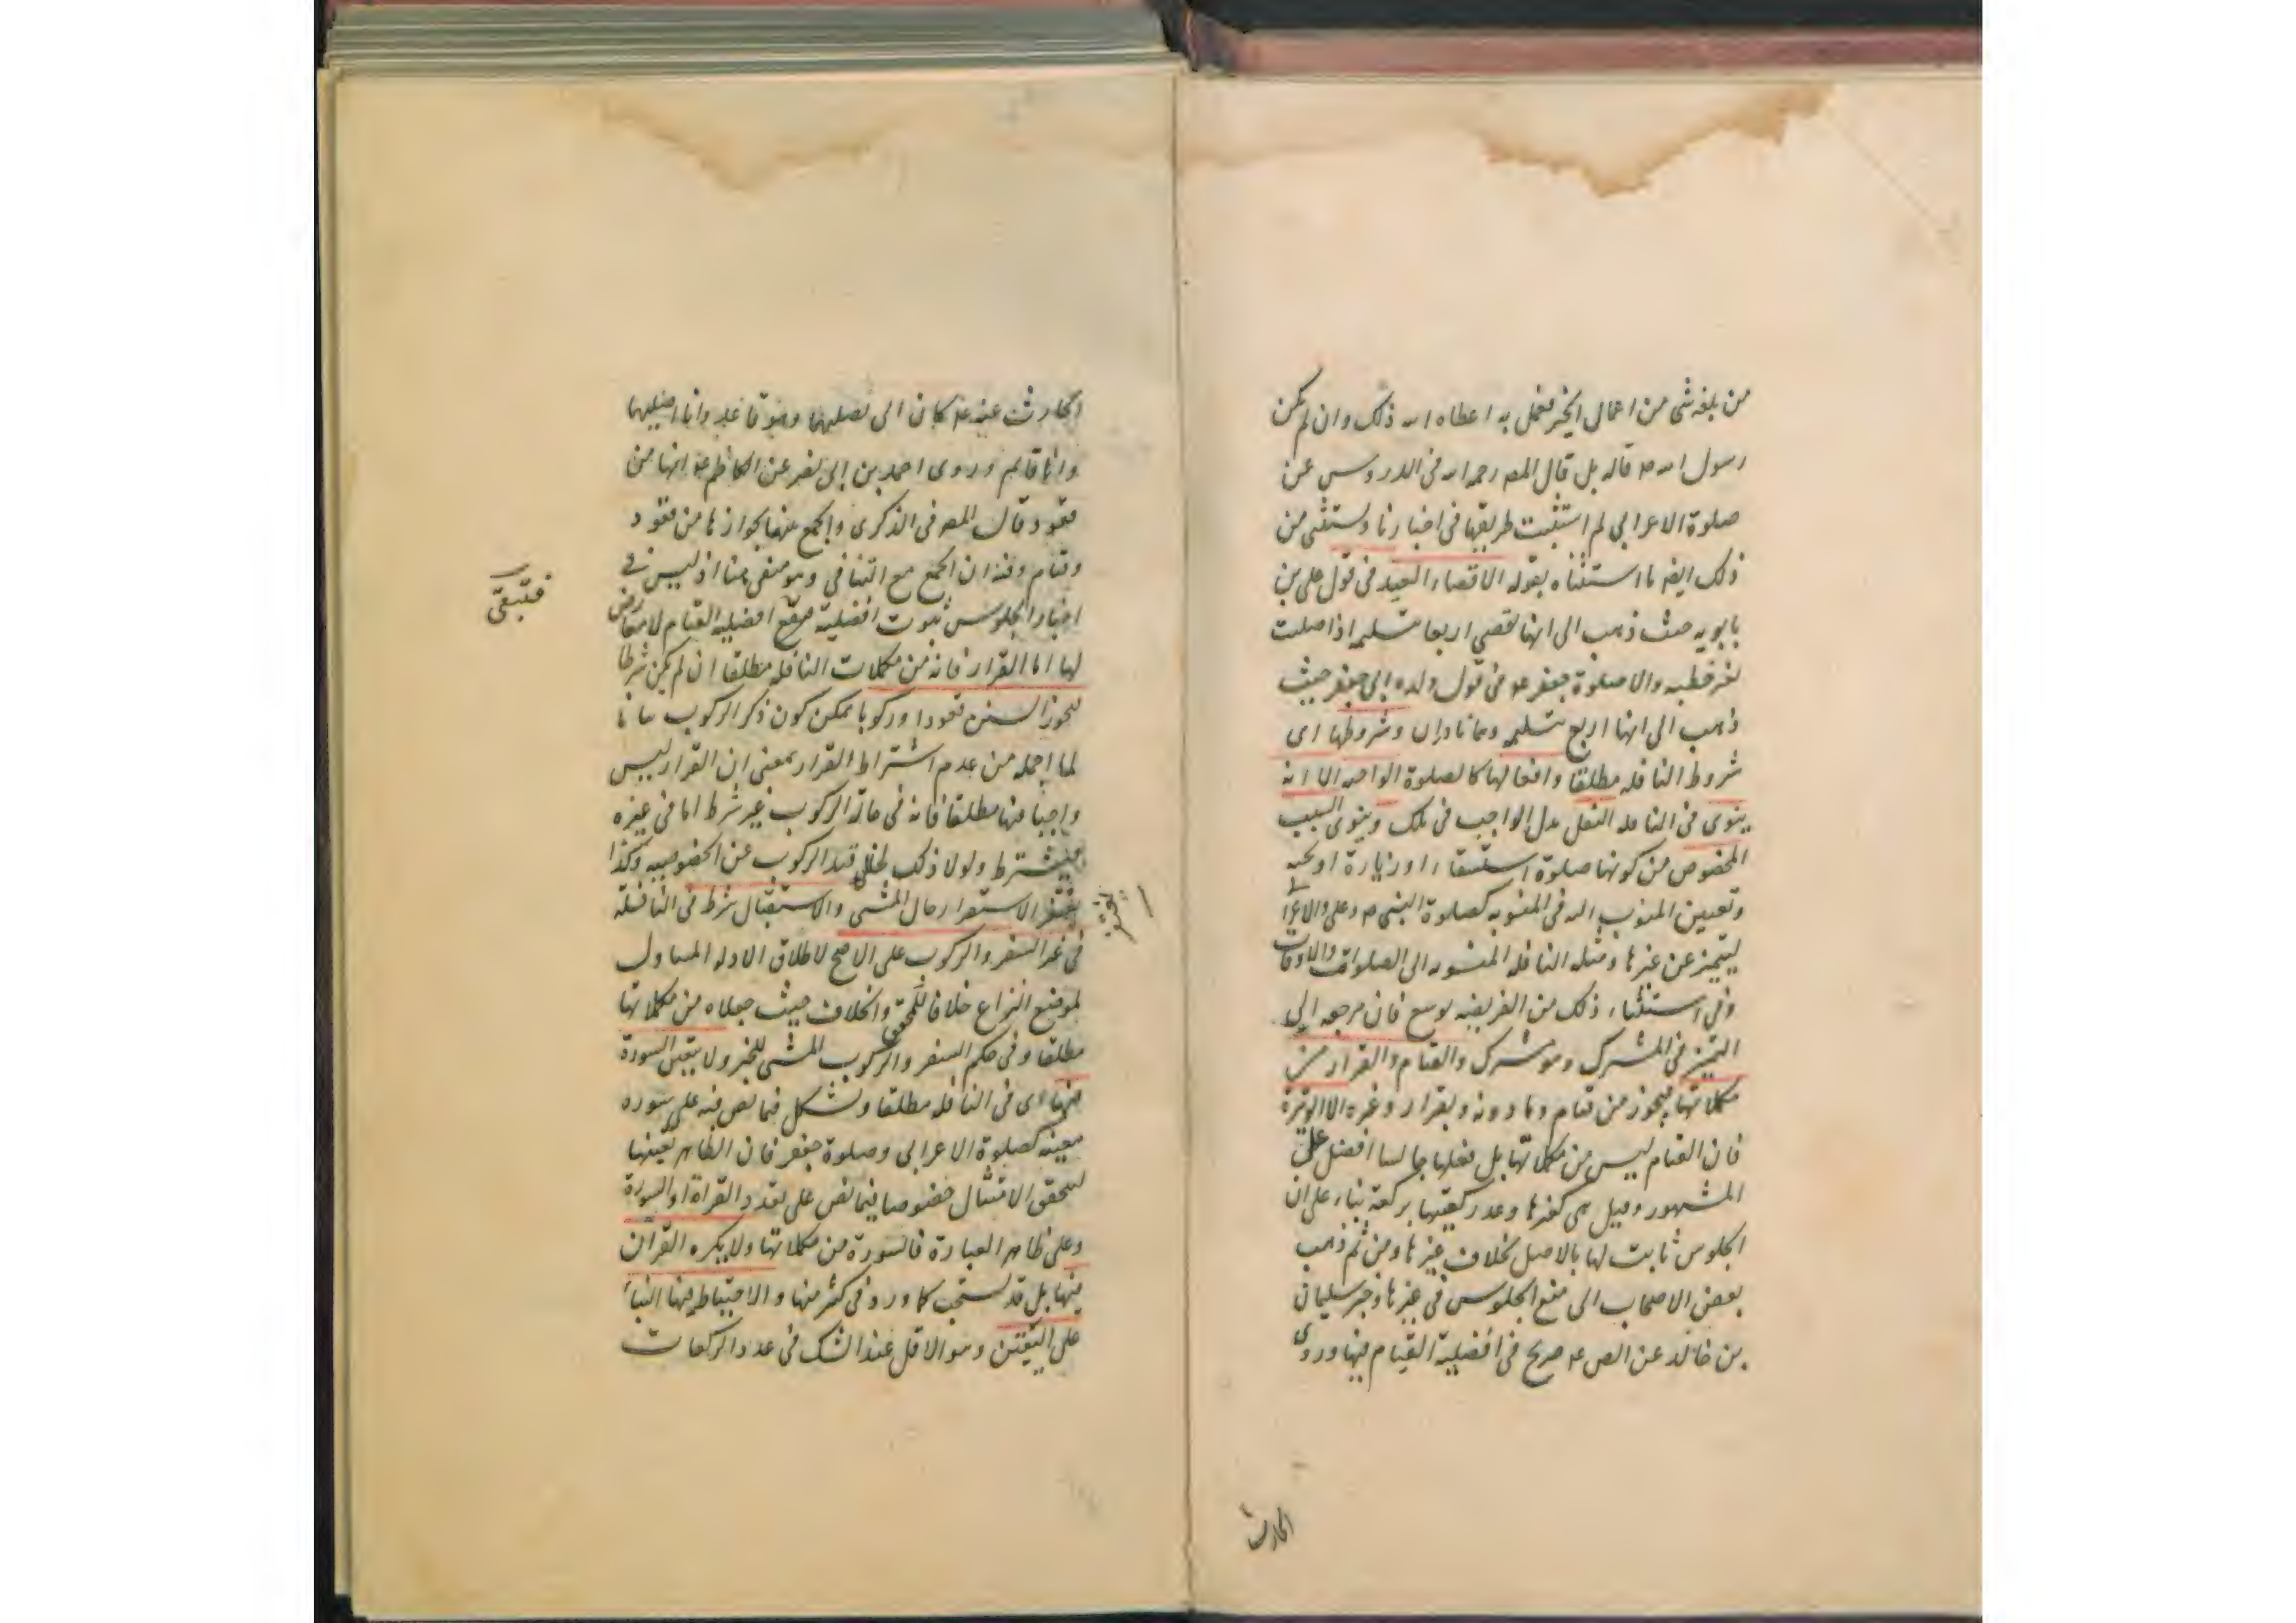 من بلغه شی من اعمال الخیر فعمل به اعطاه الله ذلک وان لم یکن
رسول الله ص قاله بل قال المصه رحمه الله فی الدروس عن
صلوة الاعرابی لم استثبت طریقها فی اخبارنا ویستثنی من
ذلک ایضه ما استثناه بقوله الا قصاء العید فی قول علی بن
بابویه حیث ذهب الی انها تقضی اربعا بتسلیمه اذا صلیت
بغیر خطبه والا صلوة جعفر عه فی قول ولده ابی جعفر حیث
ذهب الی انها اربع بتسلیمه وهما نادران وشروطها ای
شروط النافله مطلقا وافعالها کالصلوة الواجبه الا انه
ینوی فی النافله النفل بدل الواجب فی تلک وینوی السبب
المخصوص من کونها صلوة استسقاء او زیارة او تحیه
وتعیین المنوب الیه فی المنسوبه کصلوة النبی ص وعلی والاعرابی
لیتمیز عن غیرها ومثله النافله المنسوبه الی الصلوات والاوقات
وفی استثناء ذلک من الفریضه توسع فان مرجعه الی
التمیز فی المشترک وهو مشترک والقیام والقرار من
مکملاتها فیجوز من قیام وما دونه وبقرار وغیره الا الوتیرة
فان القیام لیس من مکملاتها بل فعلها جالسا افضل علی
المشهور وقیل هی کغیرها وعد رکعتیها برکعة بناء علی ان
الجلوس ثابت لها بالاصل بخلاف غیرها ومن ثم ذهب
بعض الاصحاب الی منع الجلوس فی غیرها وخبر سلیمان
بن خالد عن الص عه صریح فی افضلیة القیام فیها وروی
الحارث
الحارث عنه عه کان ابی یصلیهما وهو قاعد وانا اصلیهما
وانا قایم وروی احمد بن ابی نصر عن الکاظم عه انها من
قعود قال المصه فی الذکری والجمع بینهما بجوازها من قعود
وقیام وفیه ان الجمع مع التنافی وهو منفی هنا اذ لیس فی
اخبار الجلوس ثبوت افضلیة فیقع افضلیة القیام لا معارض
فتبقی
لها اما القرار فانه من مکملات النافله مطلقا ان لم یکن شرطا
لیجوز السنن قعودا ورکوبا یمکن کون ذکر الرکوب بیانا
لما اجمله من عدم اشتراط القرار بمعنی ان القرار لیس
واجبا فیها مطلقا فانه فی حالة الرکوب غیر شرط اما فی غیره
فیشترط ولولا ذلک لخلی قید الرکوب عن الخصوصیه وکذا
یغتفر الاستقرار حال المشی والاستقبال شرط فی النافلة
فی غیر السفر والرکوب علی الاصح لاطلاق الادله المتناول
لموضع النزاع خلافا للمحقق والخلاف حیث جعلاه من مکملاتها
مطلقا وفی حکم السفر والرکوب المشی للخبر ولا یتعین السورة
فیها ای فی النافله مطلقا ویشکل فیما نص فیه علی سوره
معینه کصلوة الاعرابی وصلوة جعفر فان الظاهر تعینها
لیحقق الامتثال خصوصا فیما نص علی تعدد القراة او السورة
وعلی ظاهر العبارة فالسورة من مکملاتها ولا یکره القران
فیها بل قد یستحب کما ورد فی کثیر منها والاحتیاط فیها البناء
علی الیقین وهو الاقل عند الشک فی عدد الرکعات